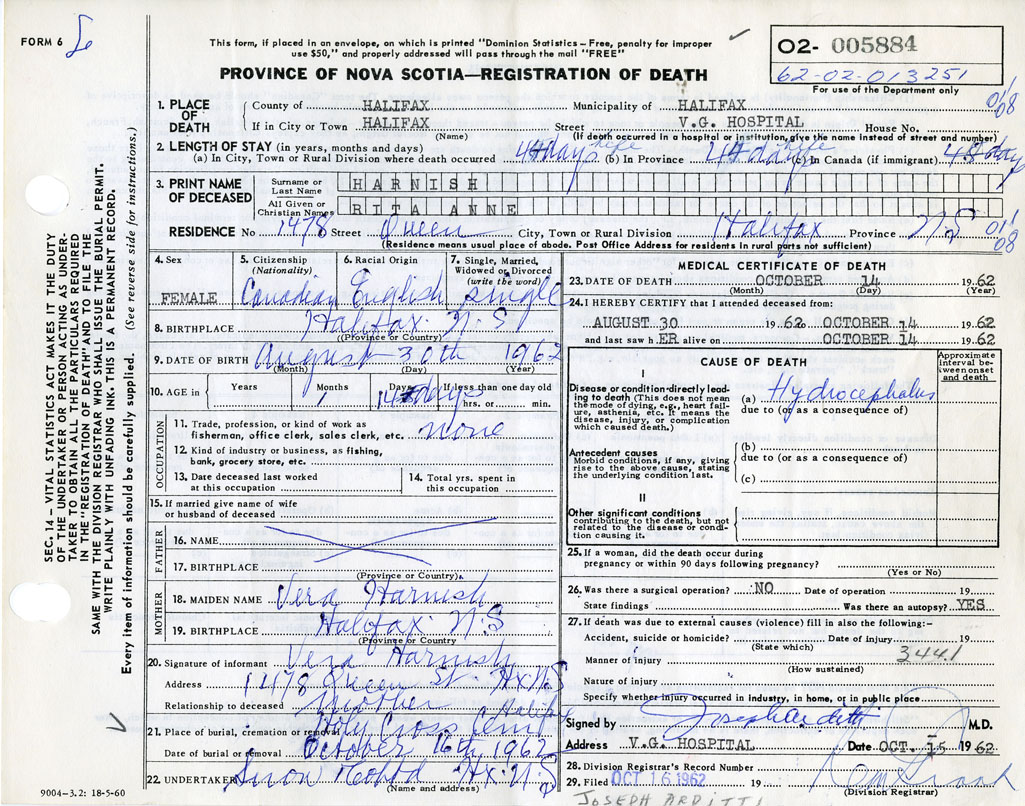 FORM 6
This form, if placed in an envelope, on which is printed "Dominion Statistics – Free, penalty for improper
use $50," and properly addressed will pass through the mail "FREE"
O2- 005884
62-02-013251
For use of the Department only
PROVINCE OF NOVA SCOTIA—REGISTRATION OF DEATH
SEC. 14 – VITAL STATISTICS ACT MAKES IT THE DUTY
OF THE UNDERTAKER OR PERSON ACTING AS UNDER-
TAKER TO OBTAIN ALL THE PARTICULARS REQUIRED
IN THE "REGISTRATION OF DEATH" AND TO FILE THE
SAME WITH THE DIVISION REGISTRAR WHO SHALL ISSUE THE BURIAL PERMIT.
WRITE PLAINLY WITH UNFADING INK. THIS IS A PERMANENT RECORD.
Every item of information should be carefully supplied. (See reverse side for instructions.)
1. PLACE OF DEATH
County of HALIFAX Municipality of HALIFAX
01/08
If in City or Town HALIFAX Street V.G. HOSPITAL House No.
(Name) (If death occurred in a hospital or institution, give the name instead of street and number)
2. LENGTH OF STAY (in years, months and days)
(a) In City, Town or Rural Division where death occurred life (b) In Province life (c) In Canada (if immigrant)
3. PRINT NAME OF DECEASED
Surname or Last Name HARNISH
All Given or Christian Names RITA ANNE
RESIDENCE No 1478 Street Queen City, Town or Rural Division Halifax Province N.S
01/08
(Residence means usual place of abode. Post Office Address for residents in rural parts not sufficient)
4. Sex 5. Citizenship (Nationality) 6. Racial Origin 7. Single, Married, Widowed or Divorced (write the word)
FEMALE Canadian English single
8. BIRTHPLACE Halifax N.S
(Province or Country)
9. DATE OF BIRTH August 30th 1962
(Month) (Day) (Year)
10. AGE in Years Months Days If less than one day old
1 14 days hrs. or min.
OCCUPATION
11. Trade, profession, or kind of work as
fisherman, office clerk, sales clerk, etc. none
12. Kind of industry or business, as fishing,
bank, grocery store, etc.
13. Date deceased last worked
at this occupation
14. Total yrs. spent in
this occupation
15. If married give name of wife
or husband of deceased
FATHER
16. NAME
17. BIRTHPLACE
(Province or Country)
MOTHER
18. MAIDEN NAME Vera Harnish
19. BIRTHPLACE Halifax N.S
(Province or Country
20. Signature of informant Vera Harnish
Address 1478 Queen St Hx N.S
Relationship to deceased Mother
21. Place of burial, cremation or removal Holy Cross Cem Halifax
Date of burial or removal October 16th 1962
22. UNDERTAKER Snow Hx. N.S
(Name and address)
9004–3.2: 18-5-60
MEDICAL CERTIFICATE OF DEATH
23. DATE OF DEATH OCTOBER 14 1962
(Month) (Day) (Year)
24. I HEREBY CERTIFY that I attended deceased from:
AUGUST 30 1962 to OCTOBER 14 1962
and last saw hER alive on OCTOBER 14 1962
CAUSE OF DEATH
Approximate interval between onset and death
I
Disease or condition directly lead-
ing to death (This does not mean
the mode of dying, e.g., heart fail-
ure, asthenia, etc. It means the
disease, injury, or complication
which caused death.)
(a) Hydrocephalus
due to (or as a consequence of)
Antecedent causes
Morbid conditions, if any, giving
rise to the above cause, stating
the underlying condition last.
(b)
due to (or as a consequence of)
(c)
II
Other significant conditions
contributing to the death, but not
related to the disease or condi-
tion causing it.
25. If a woman, did the death occur during
pregnancy or within 90 days following pregnancy?
(Yes or No)
26. Was there a surgical operation? NO Date of operation 19
State findings Was there an autopsy? YES
27. If death was due to external causes (violence) fill in also the following:-
Accident, suicide or homicide? Date of injury 19
(State which)
344.1
Manner of injury
(How sustained)
Nature of injury
Specify whether injury occurred in industry, in home, or in public place
Signed by Joseph Arditti M.D.
Address V.G. HOSPITAL Date OCT. 15 1962
28. Division Registrar's Record Number
29. Filed OCT 16 1962 19
(Division Registrar)
JOSEPH ARDITTI